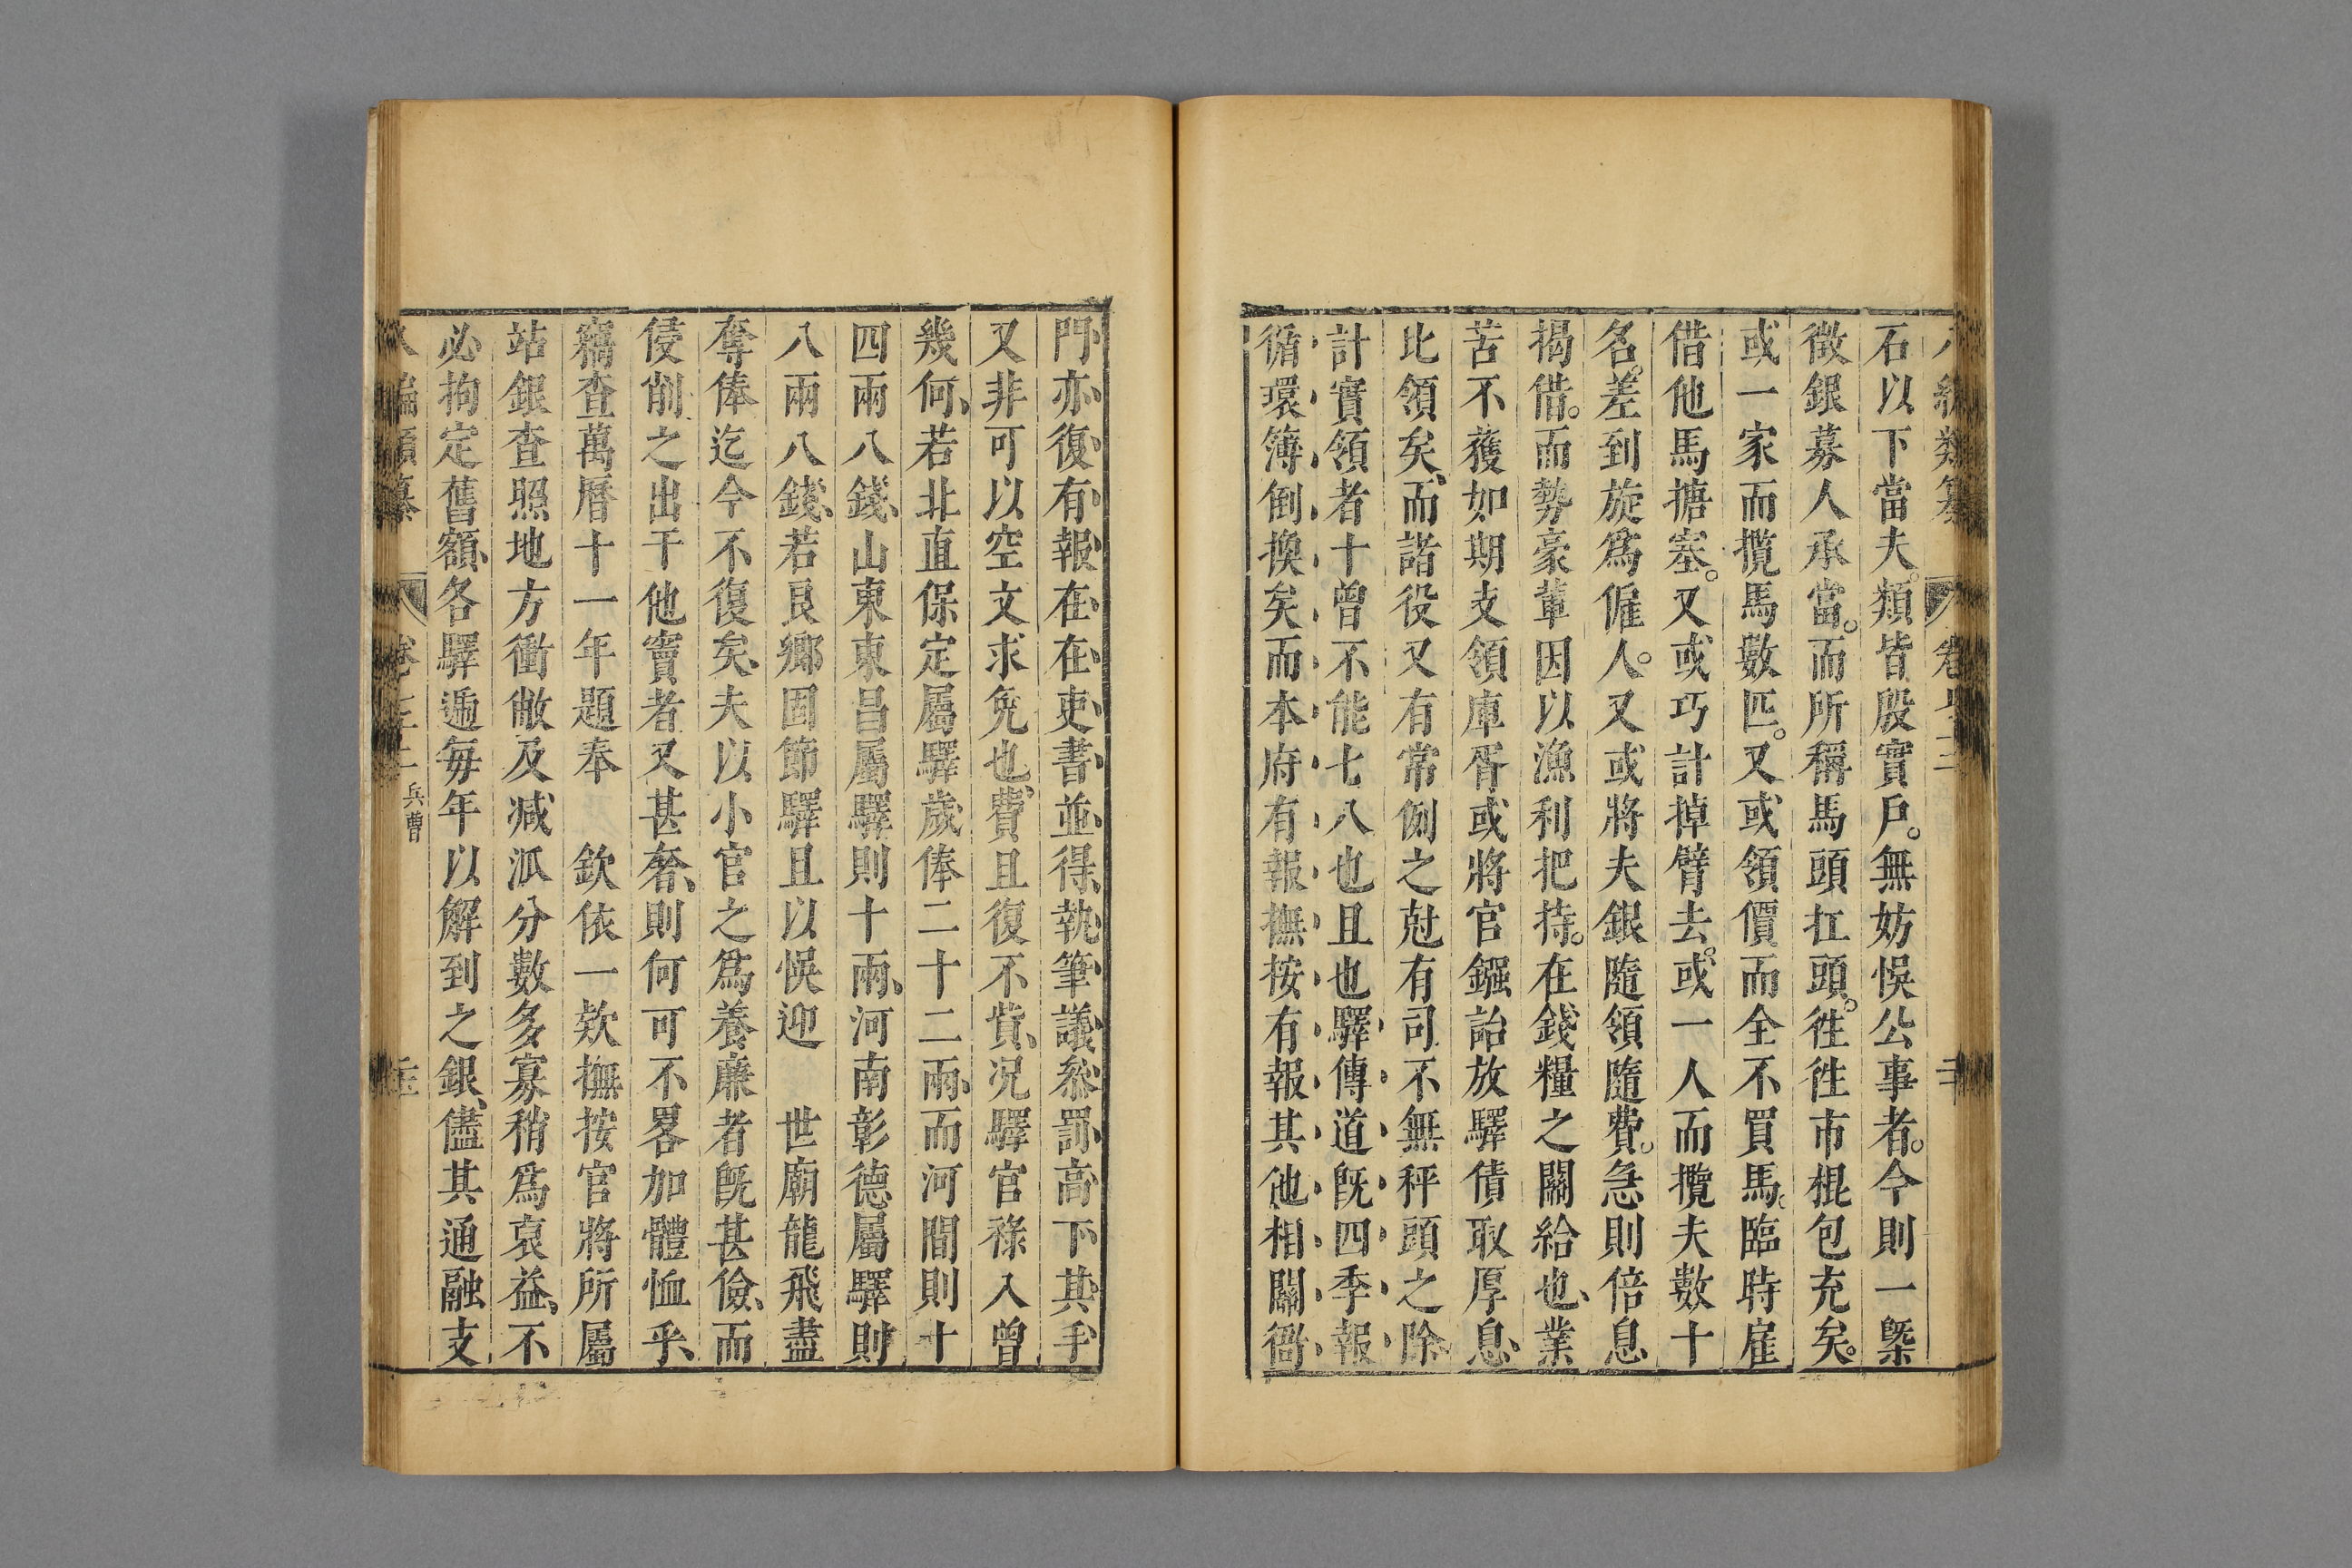 石以下當夫類皆殷實戶。無妨悞公事者。今則一槩
徵銀募人承當。而所稱馬頭扛頭。徃徃市棍包充矣。
或一家而攬馬數匹。又或領價而全不買馬。臨時雇
借他馬搪塞。又或巧計掉臂去。或一人而攬夫數十
名。差到旋爲僱人。又或將夫銀隨領隨費。急則倍息
揭借。而勢豪輩因以漁利把持。在錢糧之關給也、業
苦不獲如期支領庫胥或將官鏹詒放驛債取厚息、
比領矣、而諸役又有常例之尅有司不無秤頭之除
計實領者十曾不能七八也且也驛傳道旣四季報
循環簿倒換矣而本府有報撫按有報其他相關衙
門亦復有報在在吏書並得執筆議叅罰高下其手
又非可以空文求免也、費且復不貲、况驛官祿入曾
幾何、若北直保定屬驛歲俸二十二兩、而河間則十
四兩八錢、山東東昌屬驛則十兩、河南彰德屬驛則
八兩八錢、若良鄉固節驛且以悞迎 世廟龍飛盡
奪俸迄今不復矣、夫以小官之爲養廉者旣甚儉、而
侵削之出于他竇者又甚奢、則何可不畧加體恤乎、
竊查萬曆十一年題奉 欽依一欵撫按官將所屬
站銀查照地方衝敝及減派分數多寡稍爲裒益、不
必拘定舊額、各驛遞每年以解到之銀、儘其通融支
兵曹